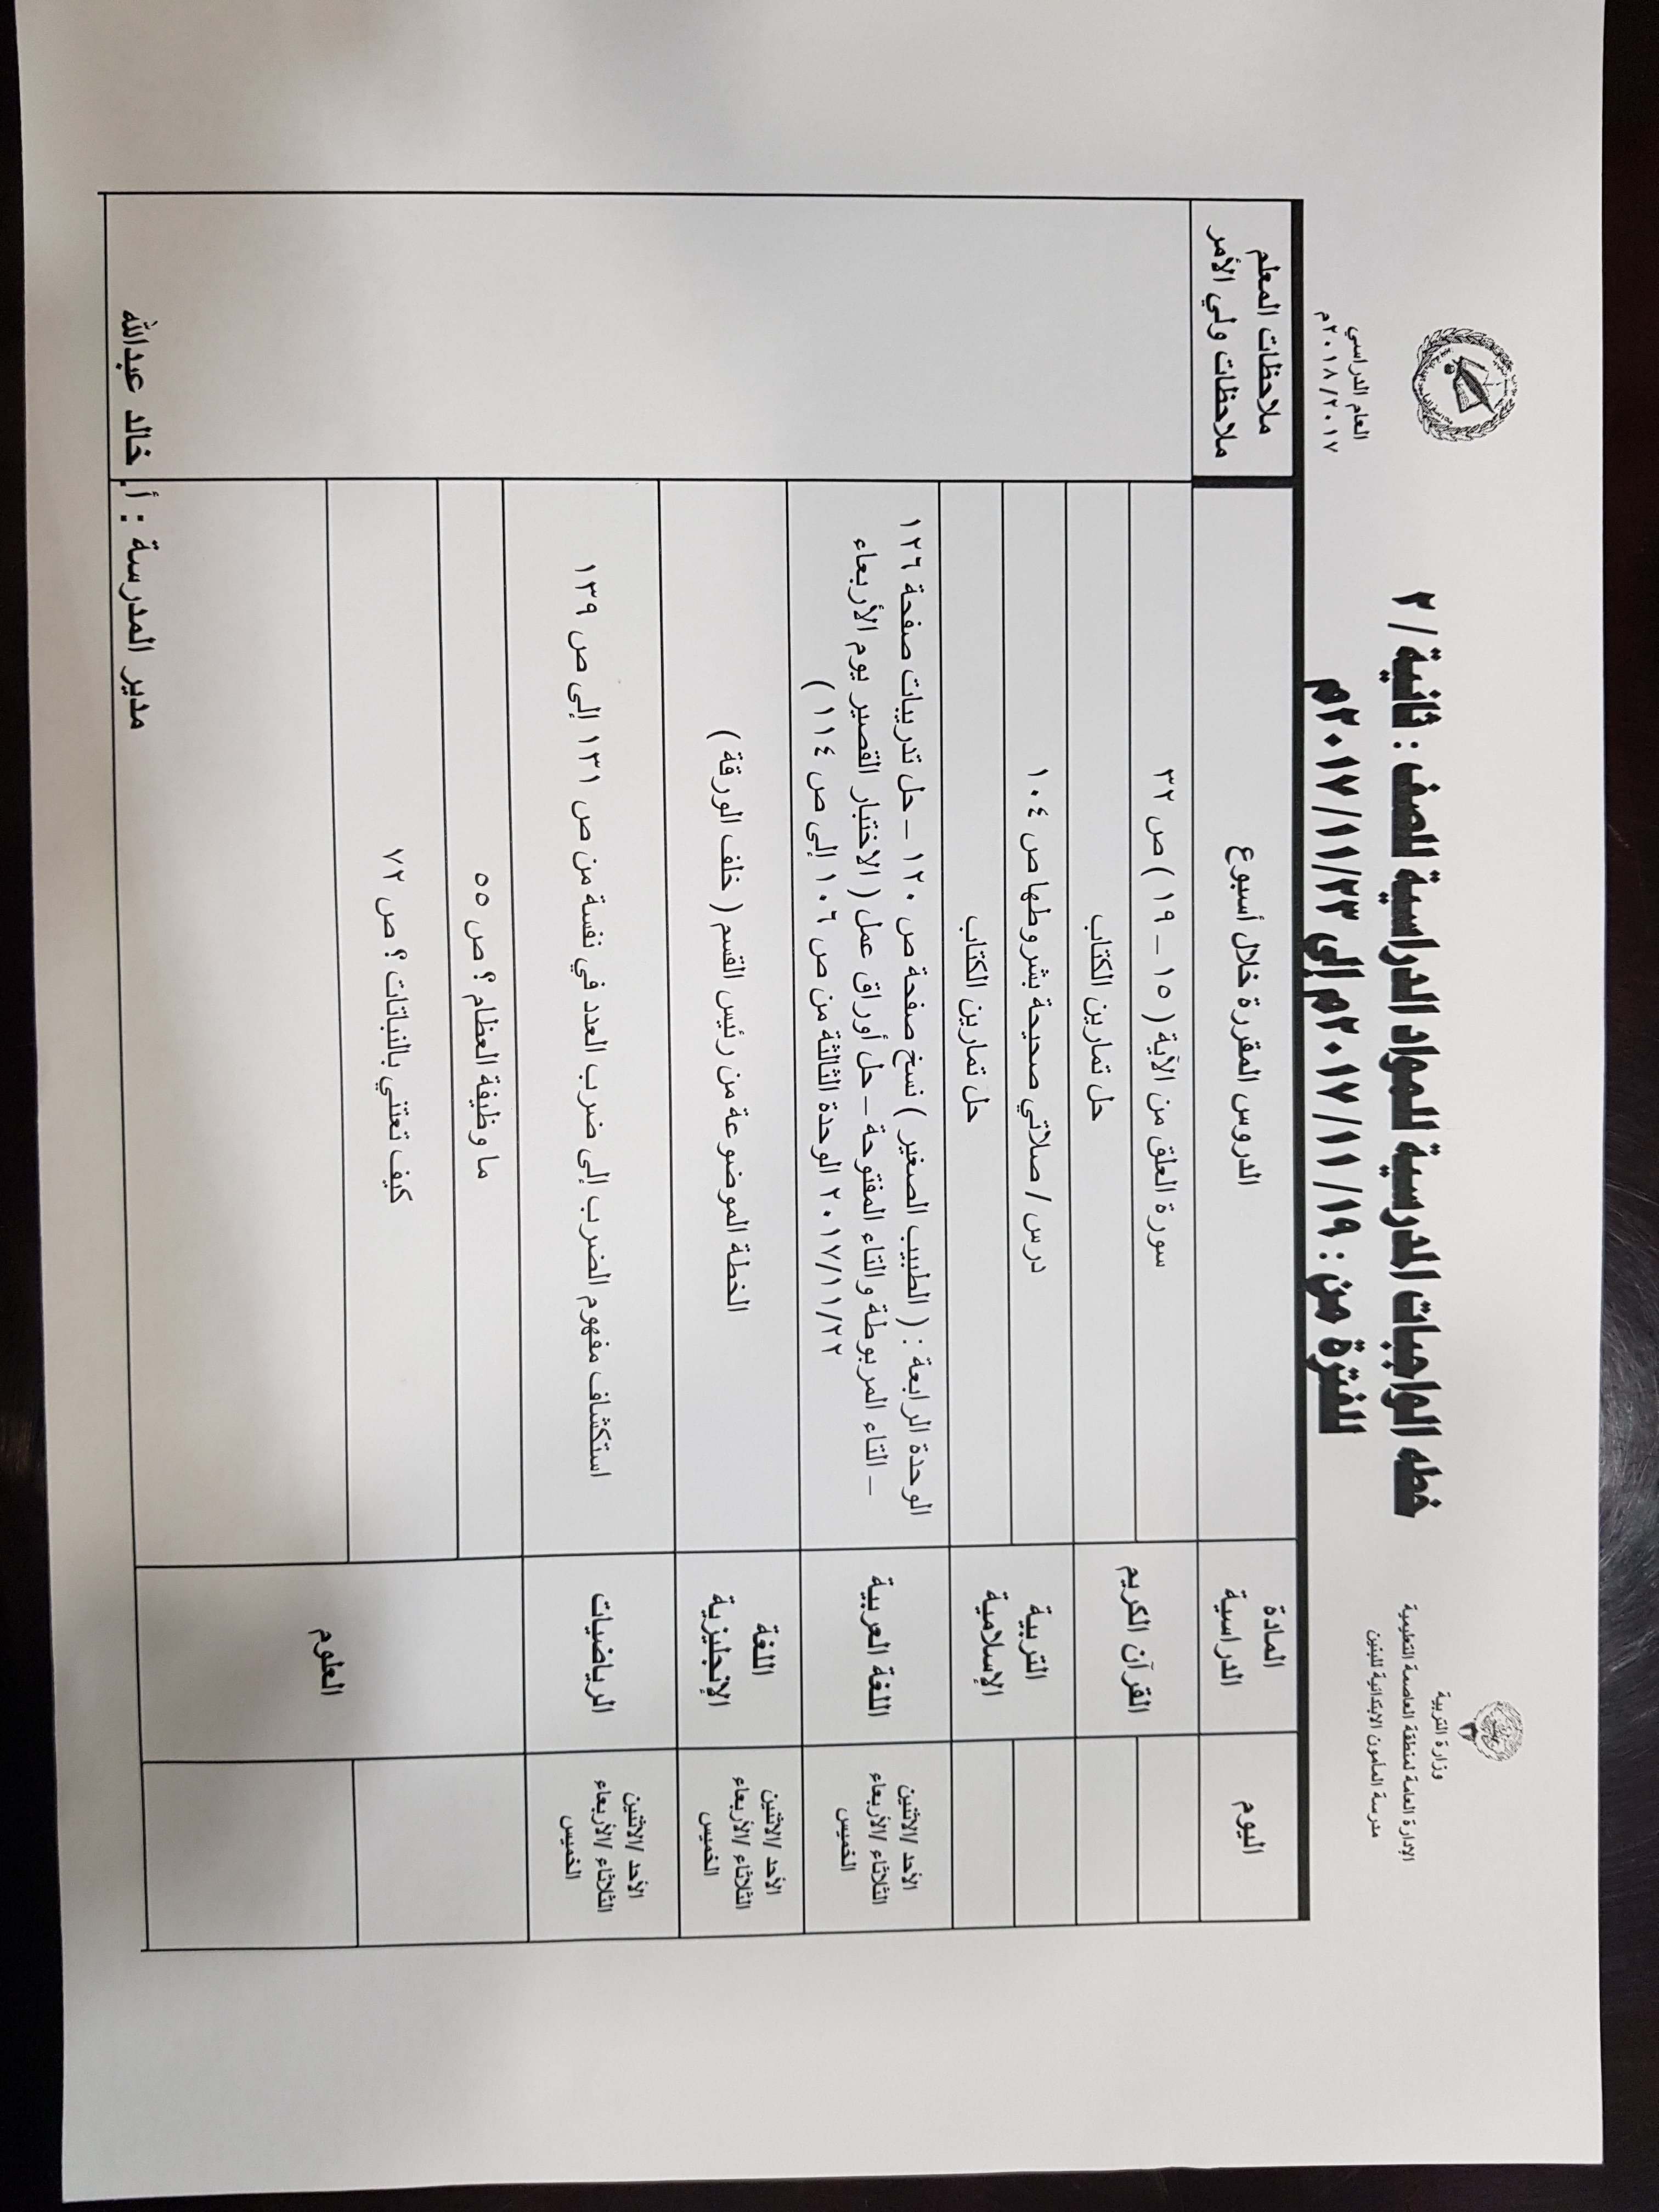 وزارة التربية
الإدارة العامة لمنطقة العاصمة التعليمية
مدرسة المأمون الابتدائية للبنين
خطه الواجبات المدرسية للمواد الدراسية للصف : ثانية / ٢
للفترة من : ١٩ /١١ /٢٠١٧م إلى ٢٣/ ١١/ ٢٠١٧م
العام الدراسي
٢٠١٨/٢٠١٧م
اليوم
المادة
الدراسية
الدروس المقررة خلال أسبوع
ملاحظات المعلم
ملاحظات ولي الأمر
القرآن الكريم
سورة العلق من الآية ( ١٥ – ١٩ ) ص ٣٢
حل تمارين الكتاب
التربية
الإسلامية
درس / صلاتي صحيحة بشروطها ص ١٠٤
حل تمارين الكتاب
الأحد /الاثنين
الثلاثاء /الأربعاء
الخميس
اللغة العربية
الوحدة الرابعة : ( الطبيب الصغير ) نسخ صفحة ص ١٢٠ – حل تدريبات صفحة ١٢٦
– التاء المربوطة والتاء المفتوحة – حل أوراق عمل ( الاختبار القصير يوم الأربعاء
٢٠١٧/١١/٢٢ الوحدة الثالثة من ص ١٠٦ إلى ص ١١٤ )
الأحد /الاثنين
الثلاثاء /الأربعاء
الخميس
اللغة
الإنجليزية
الخطة الموضوعة من رئيس القسم ( خلف الورقة )
الأحد /الاثنين
الثلاثاء /الأربعاء
الخميس
الرياضيات
استكشاف مفهوم الضرب إلى ضرب العدد في نفسة من ص ١٣١ إلى ص ١٣٩
العلوم
ما وظيفة العظام ؟ ص ٥٥
كيف تعتني بالنباتات ؟ ص ٧٢
مدير المدرسة : أ. خالد عبدالله